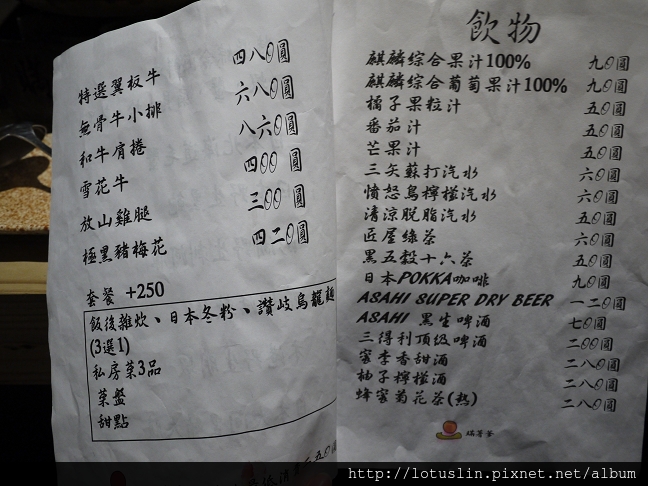 特選翼板牛 四八0圓
無骨牛小排 六八0圓
和牛肩捲 八六0圓
雪花牛 四00圓
放山雞腿 三00圓
極黑豬梅花 四二0圓
套餐 +250
飯後雜炊、日本冬粉、讚岐烏龍麵
(3選1)
私房菜3品
菜盤
甜點
飲物
麒麟綜合果汁100% 九0圓
麒麟綜合葡萄果汁100% 九0圓
橘子果粒汁 五0圓
番茄汁 五0圓
芒果汁 五0圓
三矢蘇打汽水 六0圓
憤怒鳥檸檬汽水 六0圓
清涼脫脂汽水 五0圓
匠屋綠茶 六0圓
黑五穀十六茶 五0圓
日本POKKA咖啡 九0圓
ASAHI SUPER DRY BEER 一二0圓
ASAHI 黑生啤酒 七0圓
三得利頂級啤酒 二00圓
蜜李香甜酒 二八0圓
柚子檸檬酒 二八0圓
蜂蜜菊花茶(熱) 二八0圓
http://lotuslin.pixnet.net/album